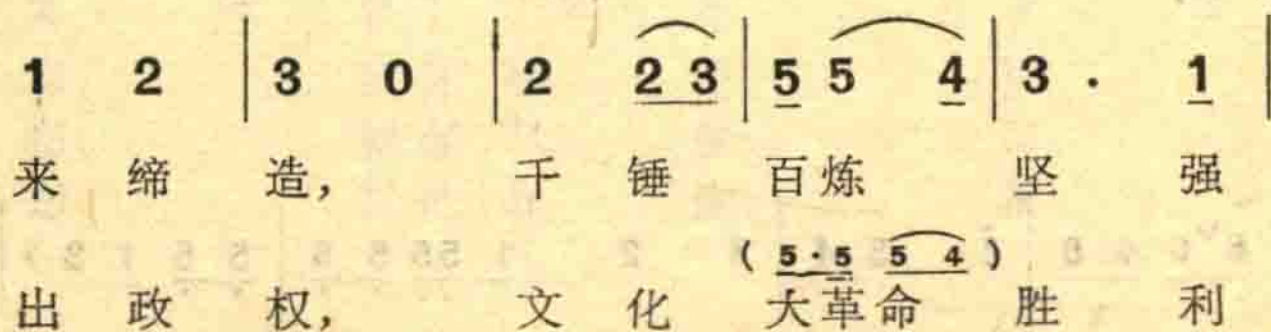 1 2 | 3 0 | 2 2 3 | 5 5 4 | 3 . 1 |
来 缔 造， 千 锤 百 炼 坚 强
( 5 · 5 5 4 )
出 政 权， 文 化 大 革 命 胜 利